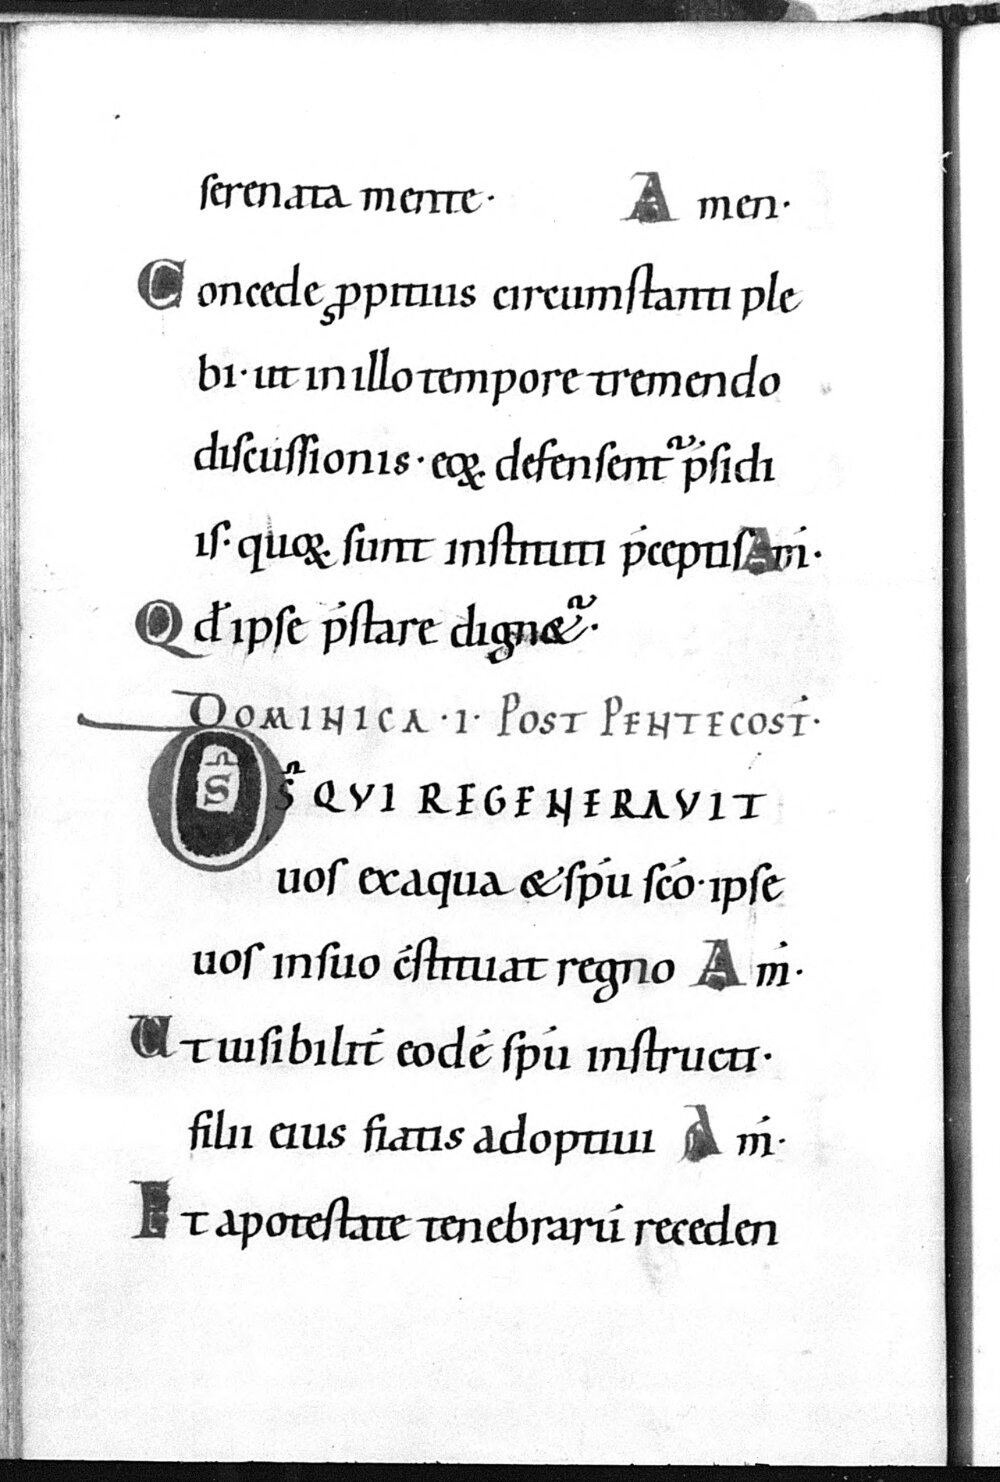 serenata mente· Amen·
Concede ꝓpitius circumstanti ple
bi· ut in illo tempore tremendo
discussionis· eoꝝ defensent᷑ p̄sidi
is· quoꝝ sunt instituti p̄ceptis Am̄·
Qd̄ ipse p̄stare dign&᷑·
DOMINICA ·I· POST PENTECOST̄·
DS̄ QVI REGENERAVIT
uos ex aqua & sp̄u sc̄o· ipse
uos in suo c̄stituat regno Am̄·
Ut uisibilit̄ eodē sp̄u instructi·
filii eius fiatis adoptiui Am̄·
Et a potestate tenebrarū receden